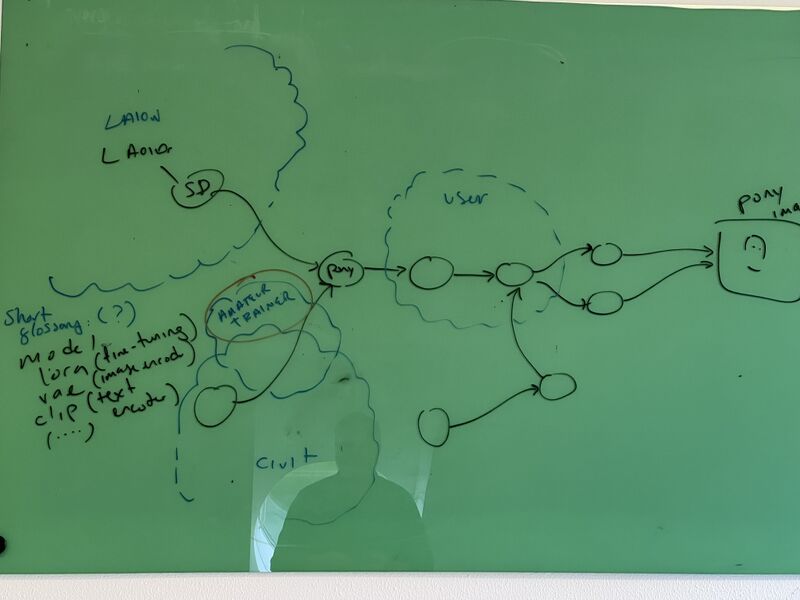 LAION
LAOIN
SD
pony
user
pony
ima
AMATEUR
TRAINER
Short
glossary: (?)
model,
lora (fine-tuning)
vae (image encod)
clip (text
encoder)
(....)
civit